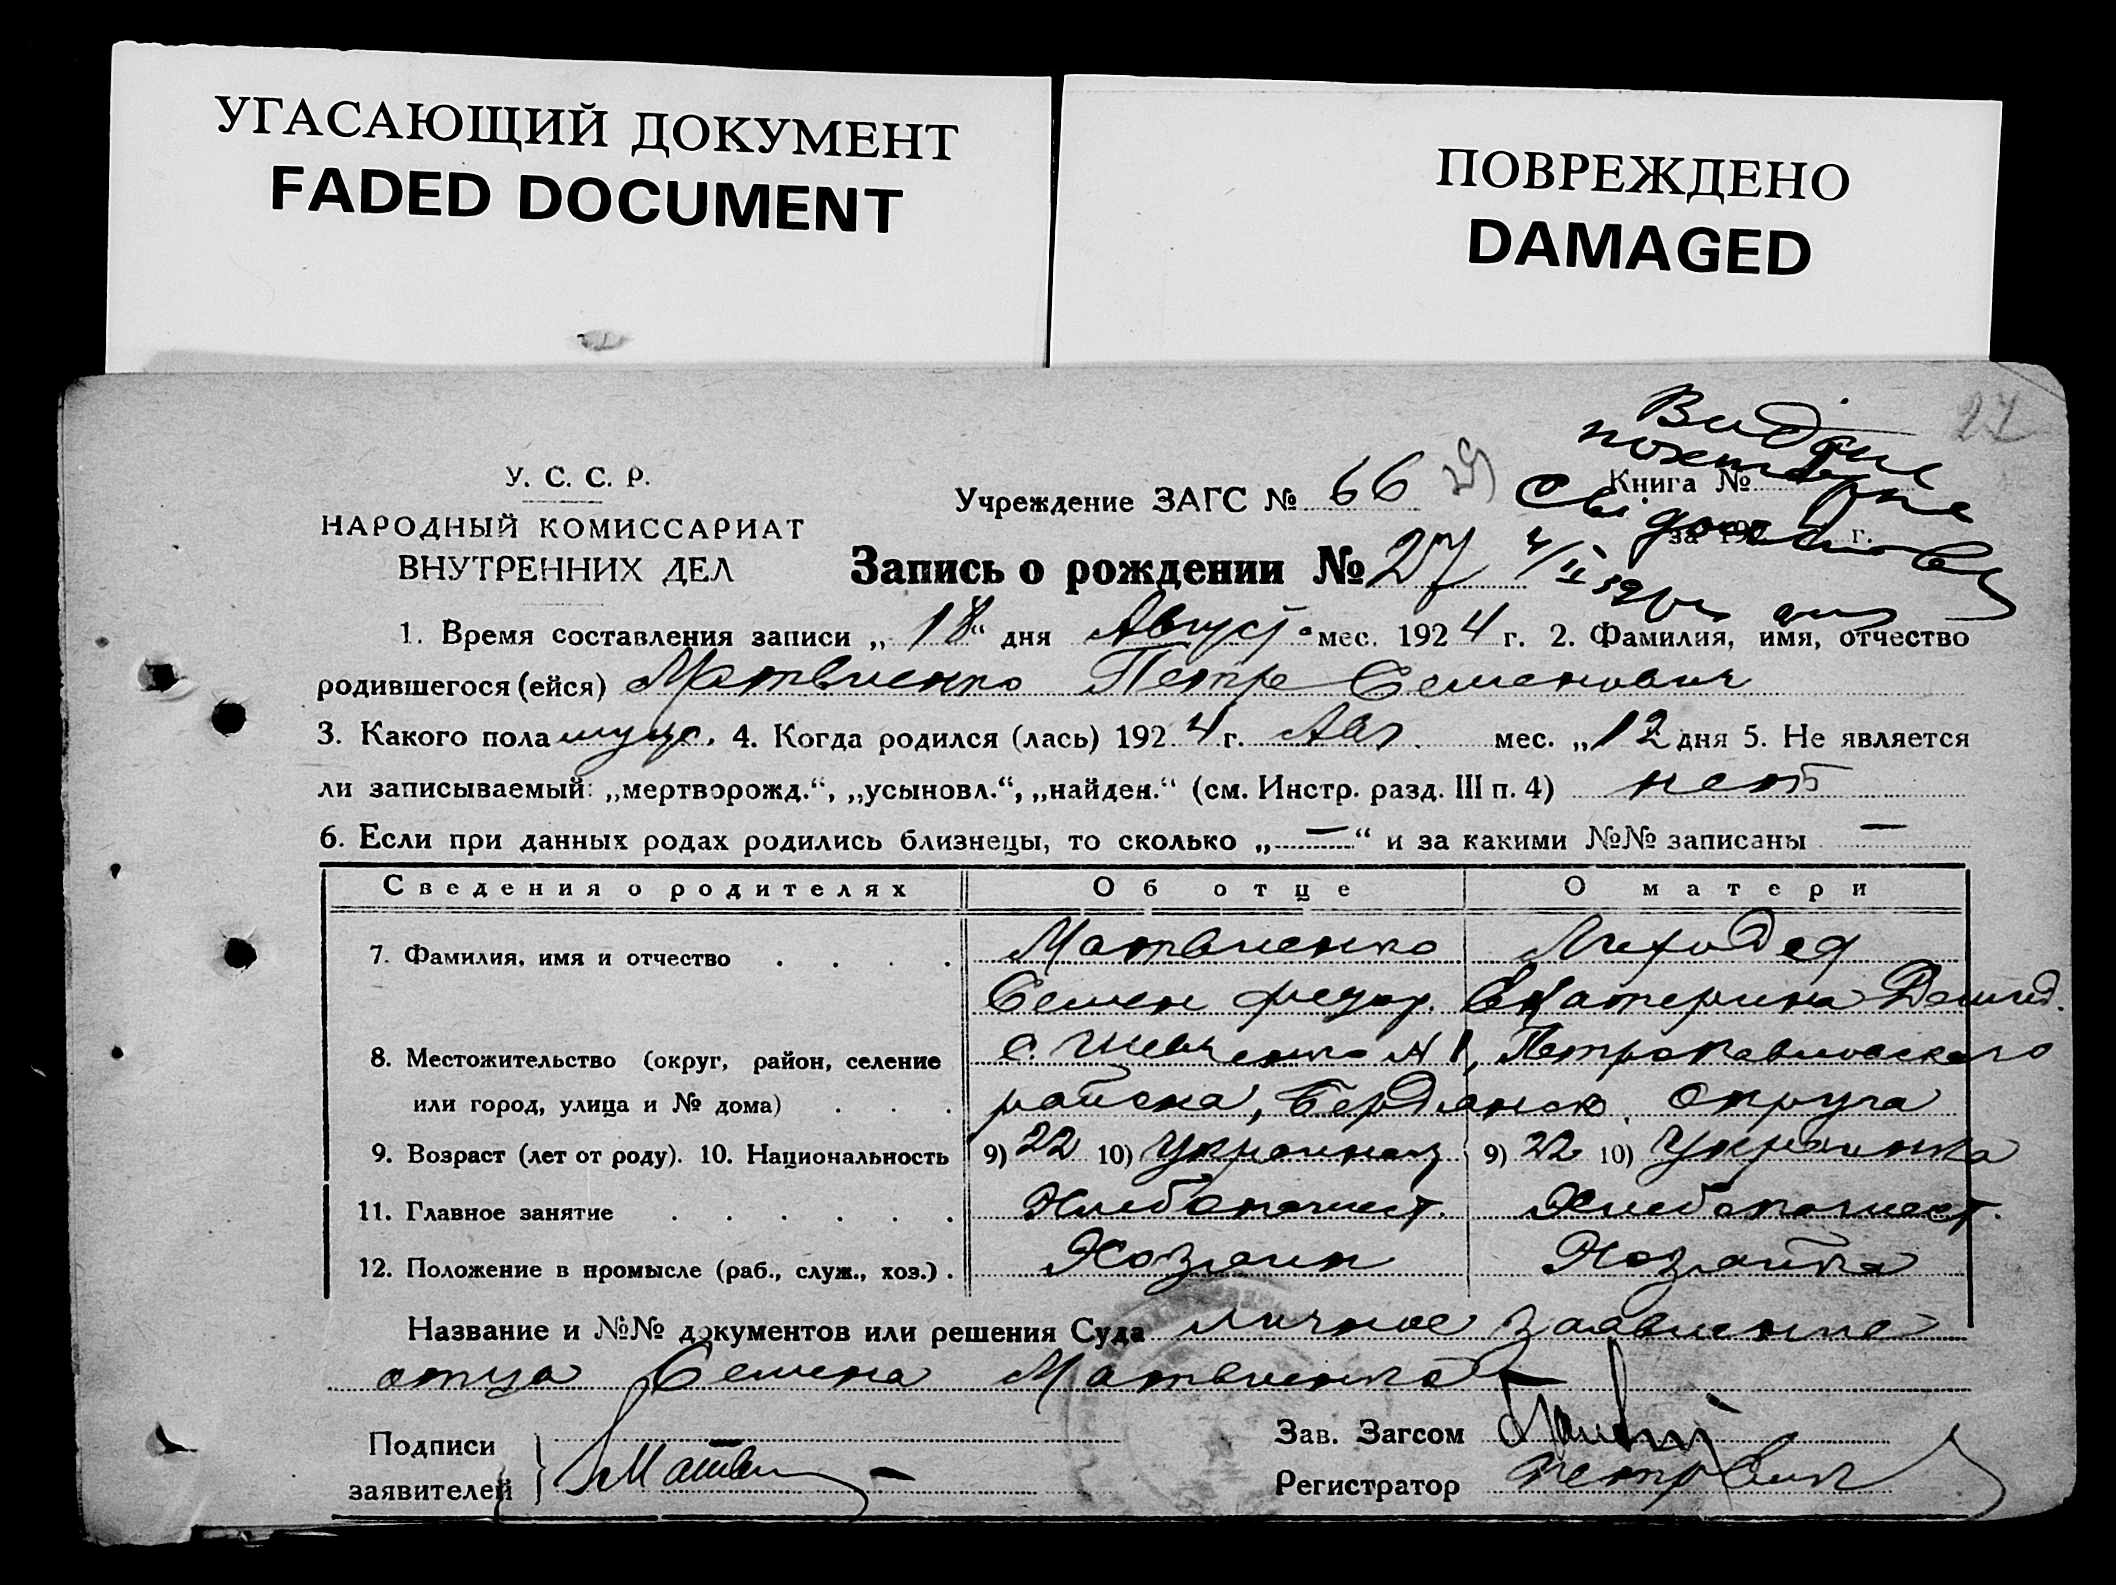 УГАСАЮЩИЙ ДОКУМЕНТ
FADED DOCUMENT
ПОВРЕЖДЕНО
DAMAGED
27
Видане
повторне
свідоцтво
4/II 39
У. С. С. Р.
НАРОДНЫЙ КОМИССАРИАТ
ВНУТРЕННИХ ДЕЛ
Учреждение ЗАГС № 66
Книга №
за 192 г.
Запись о рождении № 27
1. Время составления записи „18“ дня Август мес. 1924 г. 2. Фамилия, имя, отчество
родившегося (ейся) Матвиенко Петро Семенович
3. Какого пола мужс. 4. Когда родился (лась) 1924 г. Авг. мес. „12 дня 5. Не является
ли записываемый: „мертворожд.“, „усыновл.“, „найден.“ (см. Инстр. разд. III п. 4) нет
6. Если при данных родах родились близнецы, то сколько „—“ и за какими №№ записаны —
Сведения о родителях Об отце О матери
7. Фамилия, имя и отчество Матвиенко Лиходед
Семен Федор. Екатерина Демид.
8. Местожительство (округ, район, селение с. Шевченко №1, Петропавловского
или город, улица и № дома) района, Бердянск. округа
9. Возраст (лет от роду). 10. Национальность 9) 22 10) Украинец 9) 22 10) Украинка
11. Главное занятие Хлебопашест. Хлебопашест.
12. Положение в промысле (раб., служ., хоз.) Хозяин Хозяйка
Название и №№ документов или решения Суда личное заявление
отца Семена Матвиенко
Подписи
заявителей
Матви
Зав. Загсом
Регистратор